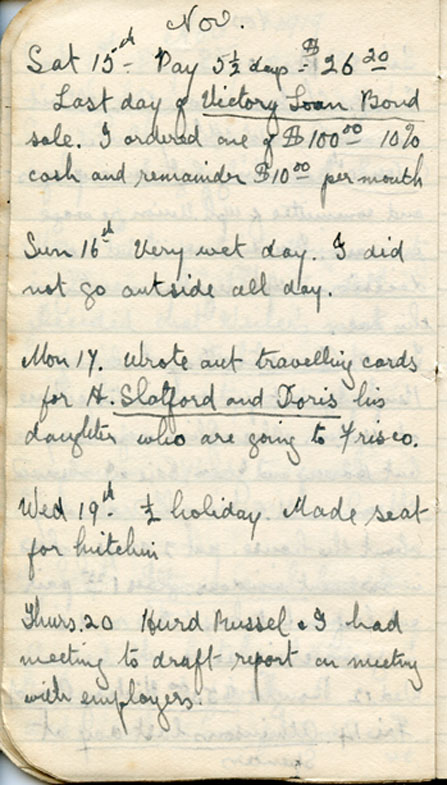 Nov.
Sat 15th Pay 5½ days = $26 20
Last day of Victory Loan Bond
sale. I ordered one of $100 00 10%
cash and remainder $10 00 per month
Sun 16th Very wet day. I did
not go outside all day.
Mon 17. Wrote out travelling cards
for H. Slatford and Doris his
daughter who are going to Frisco.
Wed 19th ½ holiday. Made seat
for kitchin
Thurs. 20 Hurd Russel & I had
meeting to draft report on meeting
with employers.